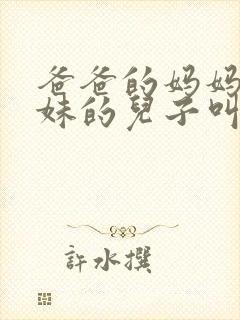 爸爸的妈妈
妹的兒子叫
許水撰